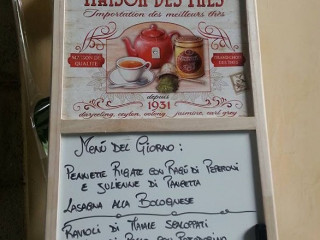 MAISON DES THÉS
Importation des meilleurs thés
QUALITÉ
depuis
1931
darjeeling, ceylon, oolong, jasmine, earl grey
MENÙ DEL GIORNO:
PENNETTE RIGATE CON RAGÙ DI PEPERONI
E JULIENNE DI PANCETTA
LASAGNA ALLA BOLOGNESE
RAVIOLI DI MAIALE SCALOPPATI
CON